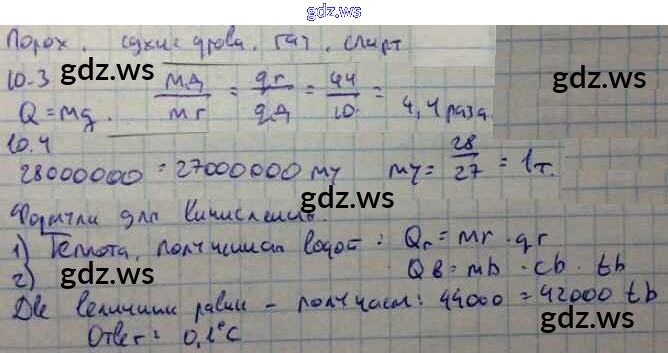 gdz.ws
Порох. сухие дрова. газ. спирт
gdz.ws gdz.ws gdz.ws
10.3 mд/mг = qг/qд = 44/10 = 4,4 раза.
Q = mq.
10.4
28000000 = 27000000 my my = 28/27 = 1 т.
gdz.ws
Формулы для
1) Теплота, полученная водой: Qг = mг · qг
2) Qв = mв · cв · tв
gdz.ws
Две величины равны - получаем: 44000 = 42000 tв
gdz.ws gdz.ws
Ответ: 0,1°C